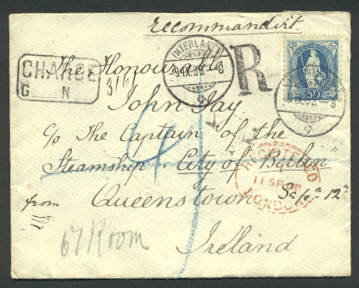 Recommandirt
The Honourable
John Jay,
c/o The Captain of the
Steamship "City of Berlin"
from Queenstown
Ireland
CHARGE
G N
INTERLAKEN
R
50
REGISTERED
11 SP
LONDON
67/Room